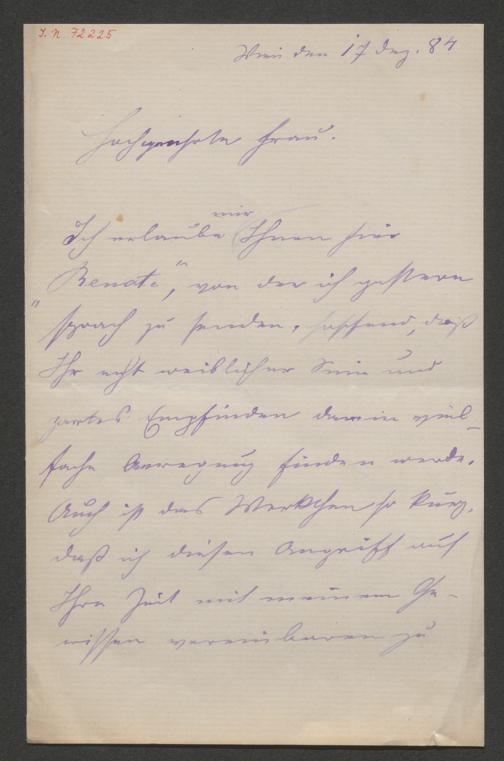 I. N. 72225
Wien den 17 Dez. 84
Hochgeehrte Frau.
mir
Ich erlaube Ihnen hier
"Renate", von der ich gestern
sprach zu senden, hoffend, daß
Ihr echt weiblicher Sinn und
zartes Empfinden darin viel-
fache Anregung finden werde.
Auch ist das Werkchen so kurz,
daß ich diesen Angriff auf
Ihre Zeit mit meinem Ge-
wissen vereinbaren zu